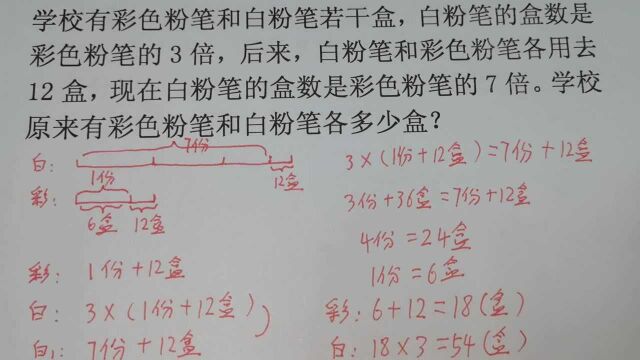 学校有彩色粉笔和白粉笔若干盒，白粉笔的盒数是
彩色粉笔的3倍，后来，白粉笔和彩色粉笔各用去
12盒，现在白粉笔的盒数是彩色粉笔的7倍。学校
原来有彩色粉笔和白粉笔各多少盒？
7份
白：
1份
12盒
彩：
6盒 12盒
彩：1份+12盒
白：3×(1份+12盒)
白：7份+12盒
3×(1份+12盒)=7份+12盒
3份+36盒=7份+12盒
4份=24盒
1份=6盒
彩：6+12=18(盒)
白：18×3=54(盒)